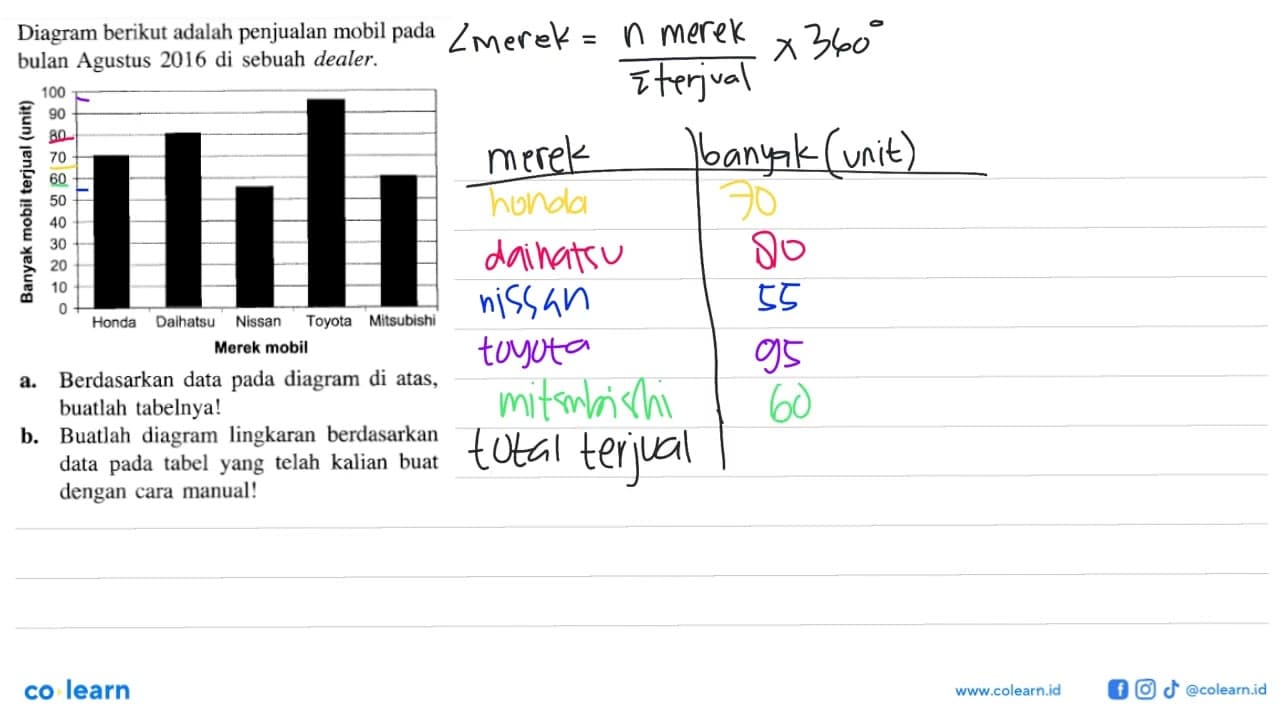 Diagram berikut adalah penjualan mobil pada
bulan Agustus 2016 di sebuah dealer.
Banyak mobil terjual (unit)
100
90
80
70
60
50
40
30
20
10
0
Honda Daihatsu Nissan Toyota Mitsubishi
Merek mobil
a. Berdasarkan data pada diagram di atas,
buatlah tabelnya!
b. Buatlah diagram lingkaran berdasarkan
data pada tabel yang telah kalian buat
dengan cara manual!
∠merek = n merek / Σ terjual × 360°
merek banyak (unit)
honda 70
daihatsu 80
nissan 55
toyota 95
mitsubishi 60
total terjual
co learn
www.colearn.id @colearn.id